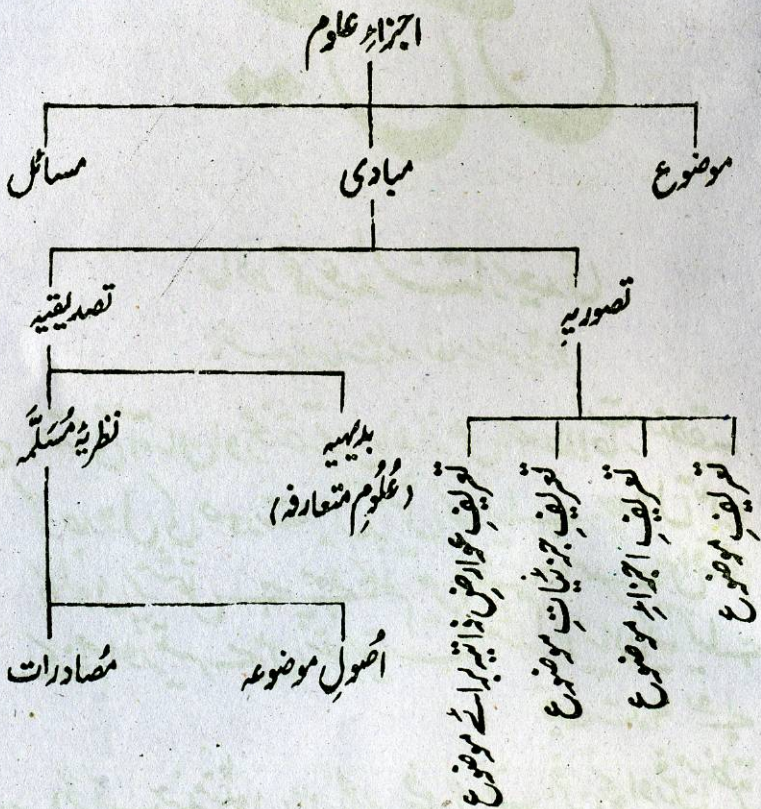 اجزاءِ علوم
موضوع
مبادی
مسائل
تصوریہ
تصدیقیہ
تعریفِ موضوع
تعریفِ اجزاءِ موضوع
تعریفِ جزئیاتِ موضوع
تعریفِ عوارضِ ذاتیہ برائے موضوع
بدیہیہ
(عُلُومِ متعارفہ)
نظریۂ مُسَلَّمَہ
اُصُولِ موضوعہ
مُصادرات